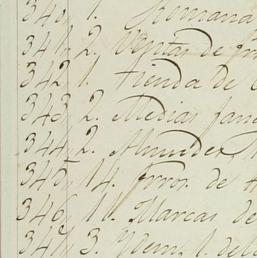 340 1. Semana
341 2. Ventas de
342 1. Tienda de
343 2. Medias fan
344 2. Almudes
345 14. de
346 11. Marcas de
347 3. Ydem